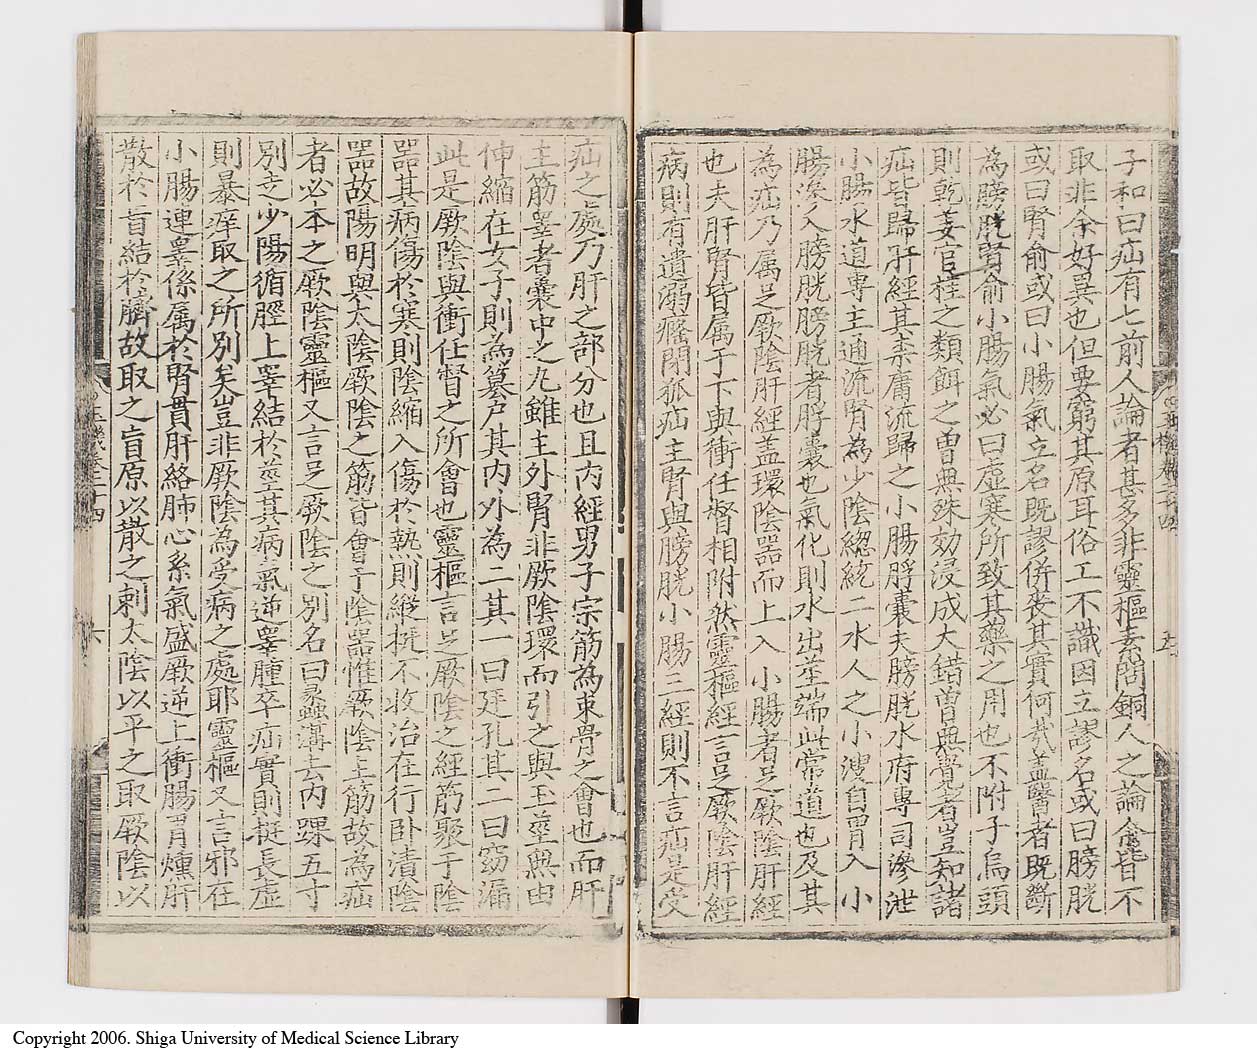 子和曰疝有七前人論者甚多非靈樞素問銅人之論余皆不
取非余好異也但要窮其原耳俗工不識因立謬名或曰膀胱
或曰腎俞或曰小腸氣立名既謬併喪其實何哉盖醫者既断
為膀胱腎俞小腸氣必曰虚寒所致其藥之用也不附子烏頭
則乾姜官桂之類餌之曽無殊効浸成大錯曽無覺者豈知諸
疝皆歸肝經其柰庸流歸之小腸脬囊夫膀胱水府専司滲泄
小腸水道専主通流腎為少陰緫綂二水人之小溲自胃入小
腸滲入膀胱膀胱者脬囊也氣化則水出莖端此常道也及其
為疝乃属足厥陰肝經盖環陰噐而上入小腸者足厥陰肝經
也夫肝腎皆属于下與衝任督相附然靈樞經言足厥陰肝經
病則有遺溺癃閉狐疝主腎與膀胱小腸三經則不言疝是受
疝之處乃肝之部分也且内經男子宗筋為束骨之會也而肝
主筋睪者囊中之丸雖主外腎非厥陰環而引之與玉莖無由
伸縮在女子則為篡户其内外為二其一曰廷孔其二曰窈漏
此是厥陰與衝任督之所會也靈樞言足厥陰之經筋聚于陰
噐其病傷於寒則陰縮入傷於熱則縱挺不收治在行卧漬陰
噐故陽明與太陰厥陰之筋皆會于陰噐惟厥陰主筋故為疝
者必本之厥陰靈樞又言足厥陰之别名曰蠡溝去内踝五寸
别走少陽循脛上睪結於莖其病氣逆睪腫卒疝實則挺長虚
則暴痒取之所别矣豈非厥陰為受病之處耶靈樞又言邪在
小腸連睪係属於腎貫肝絡肺心系氣盛厥逆上衝腸胃燻肝
散於肓結於臍故取之肓原以散之刺太陰以平之取厥陰以
六
Copyright 2006. Shiga University of Medical Science Library